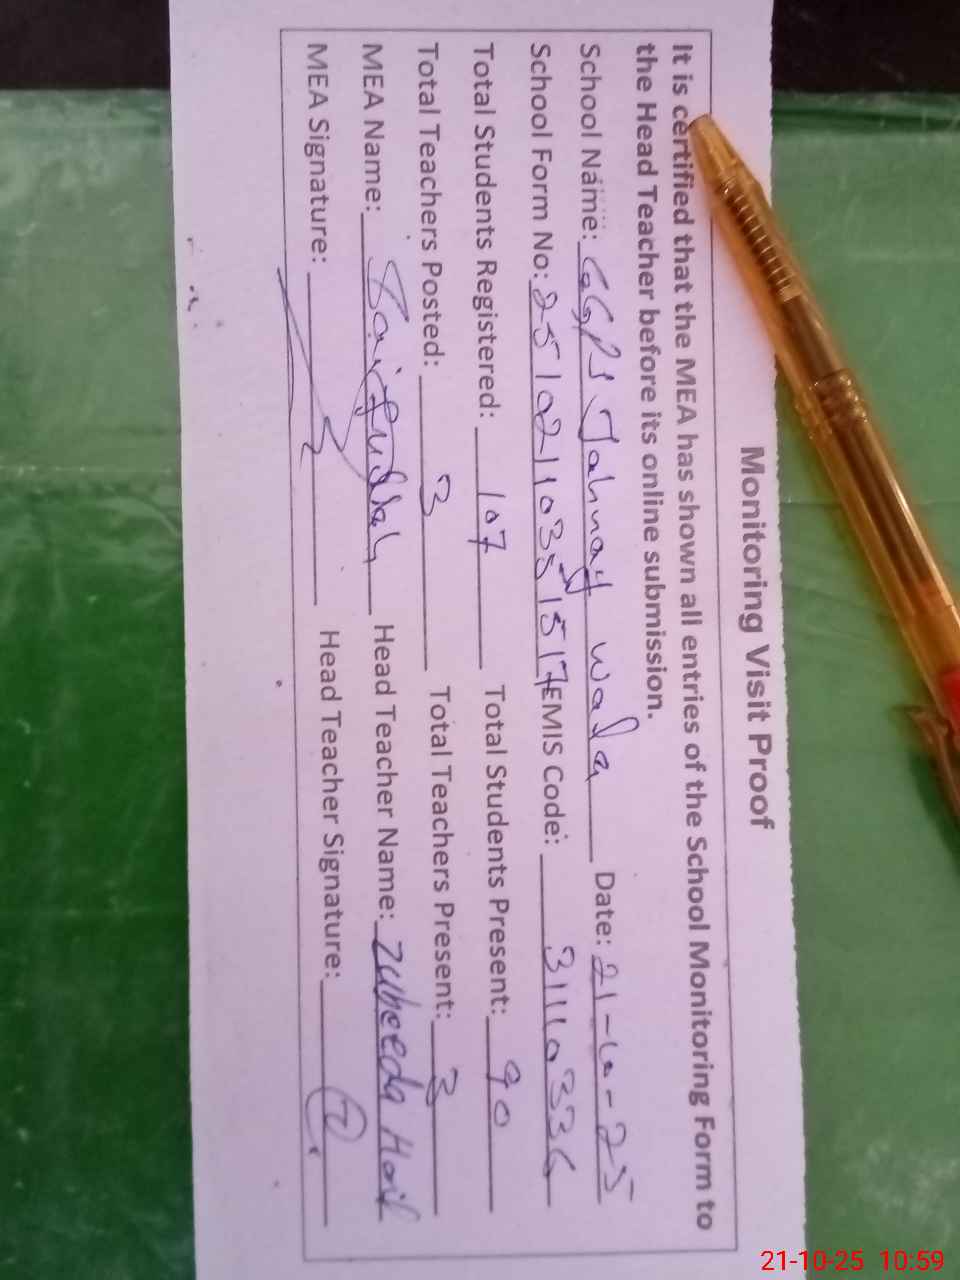 Monitoring Visit Proof
It is certified that the MEA has shown all entries of the School Monitoring Form to
the Head Teacher before its online submission.
School Name: GGPS Jahnay wala Date: 21-10-25
School Form No: EMIS Code: 31110336
Total Students Registered: 107 Total Students Present: 90
Total Teachers Posted: 3 Total Teachers Present: 3
MEA Name: Saifullah Head Teacher Name: Zubeeda
MEA Signature: Head Teacher Signature:
21-10-25 10:59